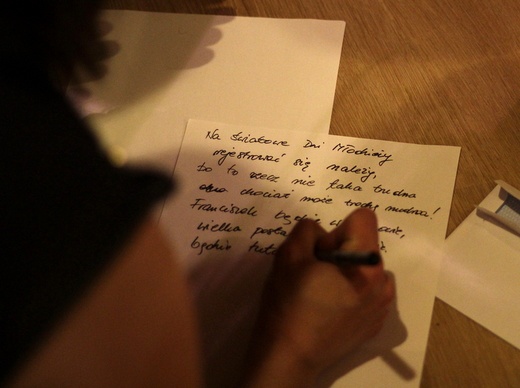 Na Światowe Dni Młodzieży
rejestrować się należy,
bo to rzecz nie taka trudna
choć chociaż może trochę nudna!
Franciszek będzie
wielka
będzie tuta